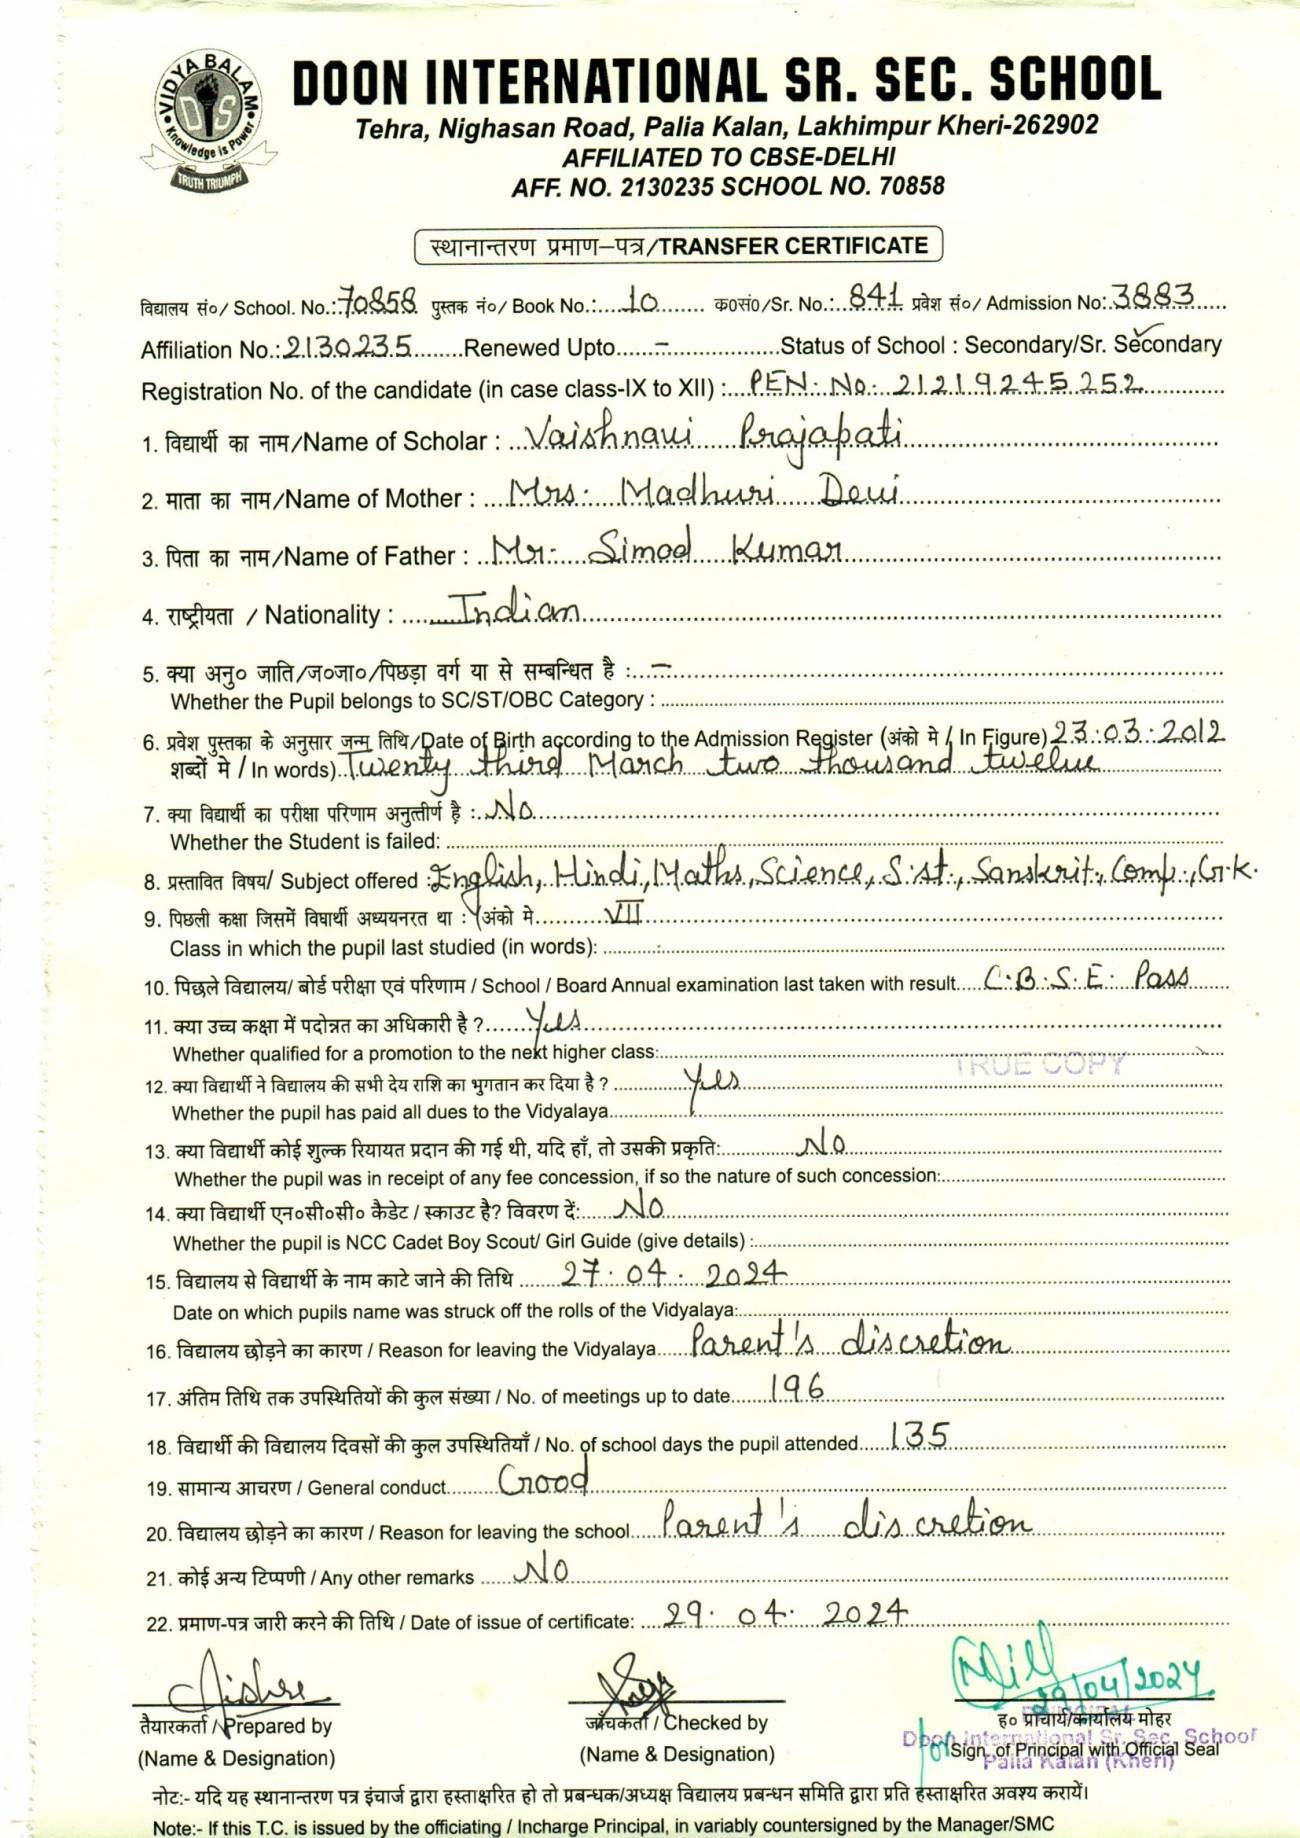 VIDYA BALAM
DIS
Knowledge is Power
TRUTH TRIUMPH
DOON INTERNATIONAL SR. SEC. SCHOOL
Tehra, Nighasan Road, Palia Kalan, Lakhimpur Kheri-262902
AFFILIATED TO CBSE-DELHI
AFF. NO. 2130235 SCHOOL NO. 70858
स्थानान्तरण प्रमाण–पत्र/TRANSFER CERTIFICATE
विद्यालय सं०/ School. No.: 70858 पुस्तक नं०/ Book No.: 10 क०सं०/Sr. No.: 841 प्रवेश सं०/ Admission No: 3883
Affiliation No.: 2130235 Renewed Upto - Status of School : Secondary/Sr. Secondary
Registration No. of the candidate (in case class-IX to XII) : PEN. No. 21219245252
1. विद्यार्थी का नाम/Name of Scholar : Vaishnavi Prajapati
2. माता का नाम/Name of Mother : Mrs. Madhuri Devi
3. पिता का नाम/Name of Father : Mr. Simod Kumar
4. राष्ट्रीयता / Nationality : Indian
5. क्या अनु० जाति/ज०जा०/पिछड़ा वर्ग या से सम्बन्धित है : -
Whether the Pupil belongs to SC/ST/OBC Category :
6. प्रवेश पुस्तका के अनुसार जन्म तिथि/Date of Birth according to the Admission Register (अंको मे / In Figure) 23.03.2012
शब्दों मे / In words) Twenty third March two thousand twelve
7. क्या विद्यार्थी का परीक्षा परिणाम अनुत्तीर्ण है : No
Whether the Student is failed:
8. प्रस्तावित विषय/ Subject offered : English, Hindi, Maths, Science, S.st., Sanskrit, Comp., G.K.
9. पिछली कक्षा जिसमें विघार्थी अध्ययनरत था : (अंको मे VII
Class in which the pupil last studied (in words):
10. पिछले विद्यालय/ बोर्ड परीक्षा एवं परिणाम / School / Board Annual examination last taken with result C.B.S.E. Pass
11. क्या उच्च कक्षा में पदोन्नत का अधिकारी है ? Yes
Whether qualified for a promotion to the next higher class:
TRUE COPY
12. क्या विद्यार्थी ने विद्यालय की सभी देय राशि का भुगतान कर दिया है ? Yes
Whether the pupil has paid all dues to the Vidyalaya
13. क्या विद्यार्थी कोई शुल्क रियायत प्रदान की गई थी, यदि हाँ, तो उसकी प्रकृति: No
Whether the pupil was in receipt of any fee concession, if so the nature of such concession:
14. क्या विद्यार्थी एन०सी०सी० कैडेट / स्काउट है? विवरण दें: No
Whether the pupil is NCC Cadet Boy Scout/ Girl Guide (give details) :
15. विद्यालय से विद्यार्थी के नाम काटे जाने की तिथि 27.04.2024
Date on which pupils name was struck off the rolls of the Vidyalaya:
16. विद्यालय छोड़ने का कारण / Reason for leaving the Vidyalaya Parent's discretion
17. अंतिम तिथि तक उपस्थितियों की कुल संख्या / No. of meetings up to date 196
18. विद्यार्थी की विद्यालय दिवसों की कुल उपस्थितियाँ / No. of school days the pupil attended 135
19. सामान्य आचरण / General conduct Good
20. विद्यालय छोड़ने का कारण / Reason for leaving the school Parent's discretion
21. कोई अन्य टिप्पणी / Any other remarks No
22. प्रमाण-पत्र जारी करने की तिथि / Date of issue of certificate: 29.04.2024
29/04/2024
तैयारकर्ता / Prepared by जाँचकर्ता / Checked by ह० प्राचार्य/कार्यालय मोहर
PRINCIPAL
Doon International Sr. Sec. School
(Name & Designation) (Name & Designation) for Sign. of Principal with Official Seal
Palia Kalan (Kheri)
नोट:- यदि यह स्थानान्तरण पत्र इंचार्ज द्वारा हस्ताक्षरित हो तो प्रबन्धक/अध्यक्ष विद्यालय प्रबन्धन समिति द्वारा प्रति हस्ताक्षरित अवश्य करायें।
Note:- If this T.C. is issued by the officiating / Incharge Principal, in variably countersigned by the Manager/SMC